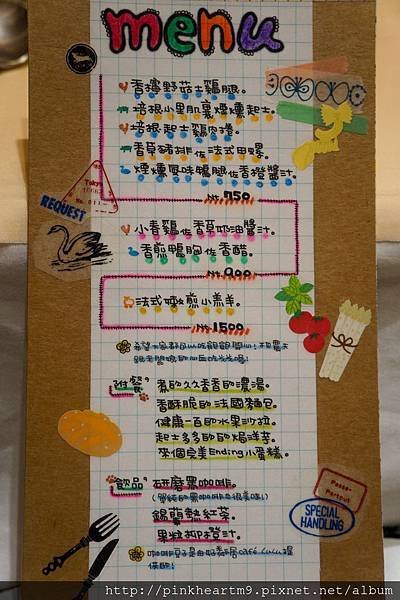 menu
香擰野菇士雞腿。
培根小里肌裹煙燻起士。
培根起士雞肉捲。
香草豬排佐法式田螺。
煙燻風味鴨腿佐香橙醬汁。
NT 750
小春雞佐香草奶油醬汁。
香煎鴨胸佐香醋。
NT 900
法式 煎小羔羊。
NT 1500
附餐
煮的久久香香的濃湯。
香酥脆的法國麵包。
健康一百的水果沙拉。
起士多多的焗洋菜。
來個完美Ending小蛋糕。
飲品
研磨黑咖啡。
(單純的黑咖啡也很美味!)
錫蘭熱紅茶。
果粒柳橙汁。
Tokyo
REQUEST
Passe-Partout
SPECIAL HANDLING
http://pinkheartm9.pixnet.net/album